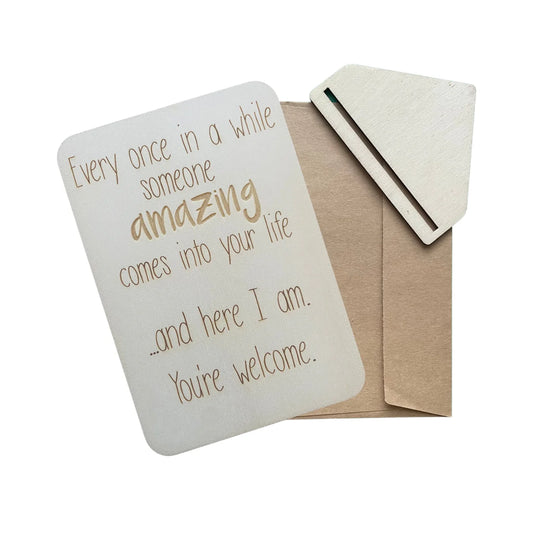 Every once in a while
someone
amazing
comes into your life
...and here I am.
You're welcome.